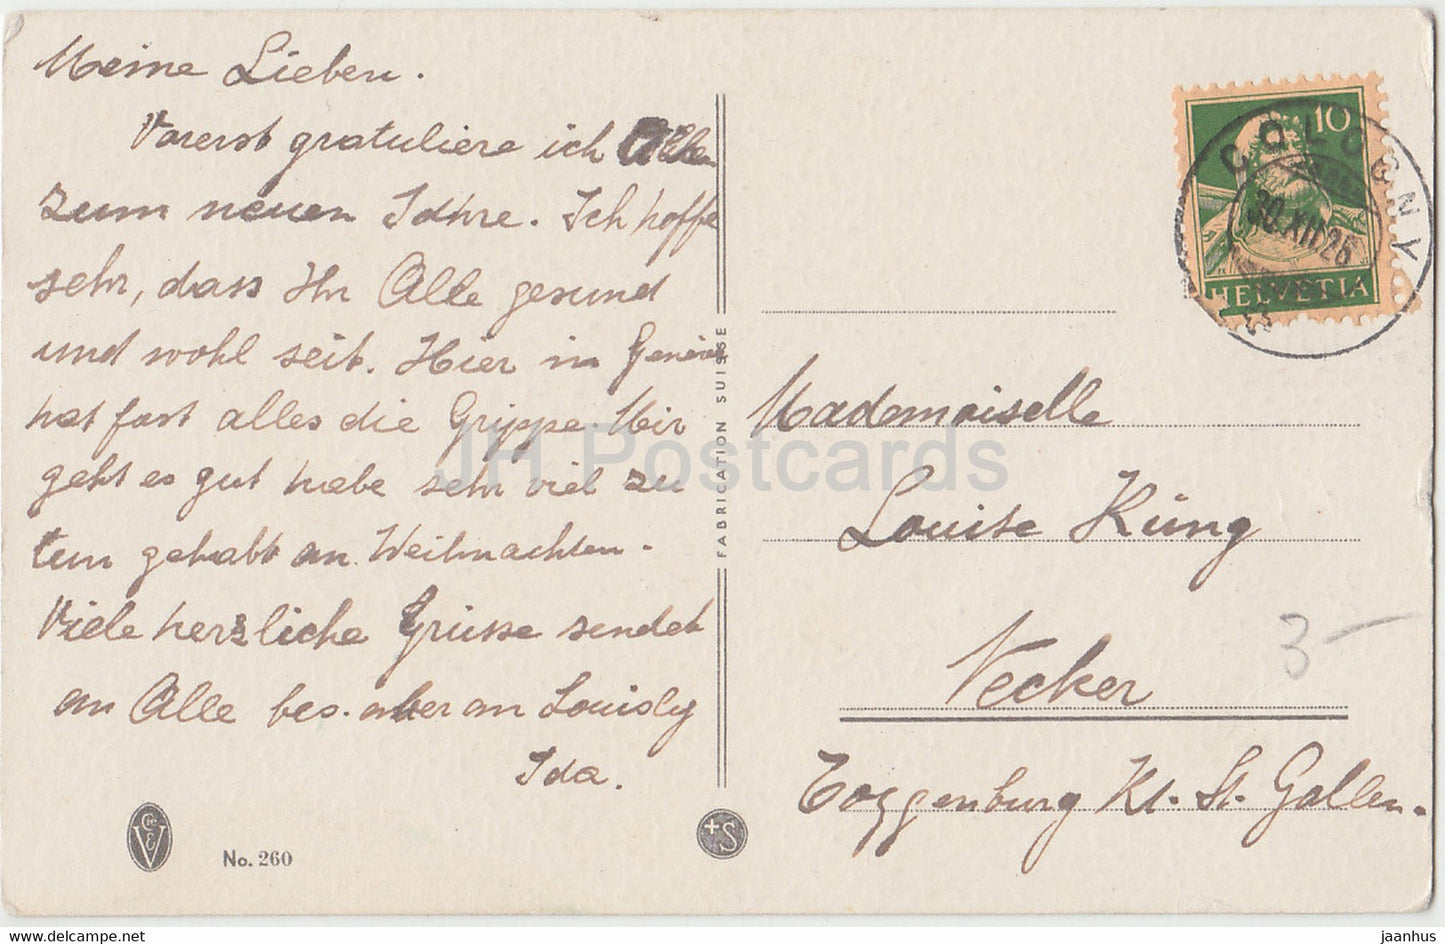 Meine Lieben.
Vorerst gratuliere ich Allen
zum neuen Jahre. Ich hoffe
sehr, dass Ihr Alle gesund
und wohl seit. Hier in Genève
hat fast alles die Grippe. Mir
geht es gut habe sehr viel zu
tun gehabt an Weihnachten.
Viele herzliche Grüsse sendet
an Alle bes. aber an Louisly
Ida.
No. 260
FABRICATION SUISSE
+S
10
HELVETIA
COLOGNY
30.XII.26
Mademoiselle
Louise Küng
Necker
Toggenburg Kt. St. Gallen.
3-
JH Postcards
jaanhus